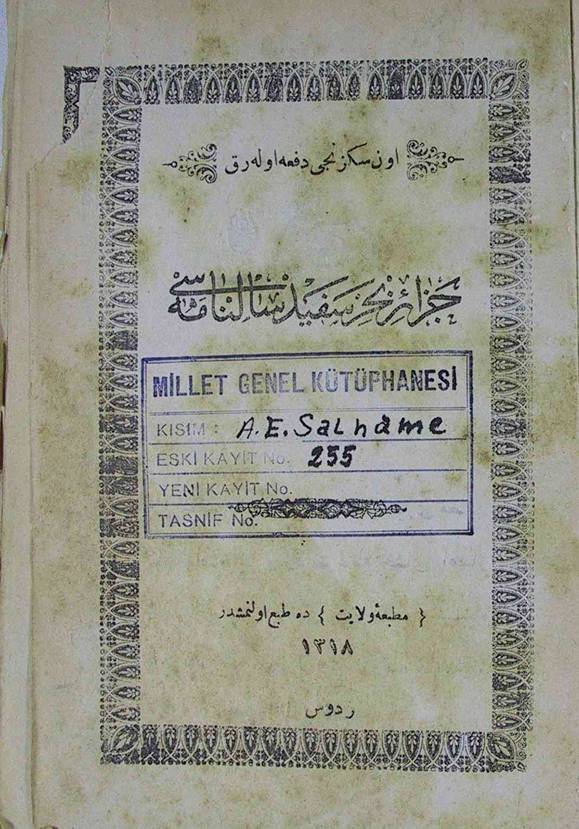 اون سكزنجى دفعه اوله رق
جزائر بحر سفيد سالنامه سى
MİLLET GENEL KÜTÜPHANESİ
KISIM : A.E. Salname
ESKİ KAYIT No. 255
YENİ KAYIT No.
TASNİF No.
{ مطبعهٔ ولايت } ده طبع اولنمشدر
١٣١٨
ردوس